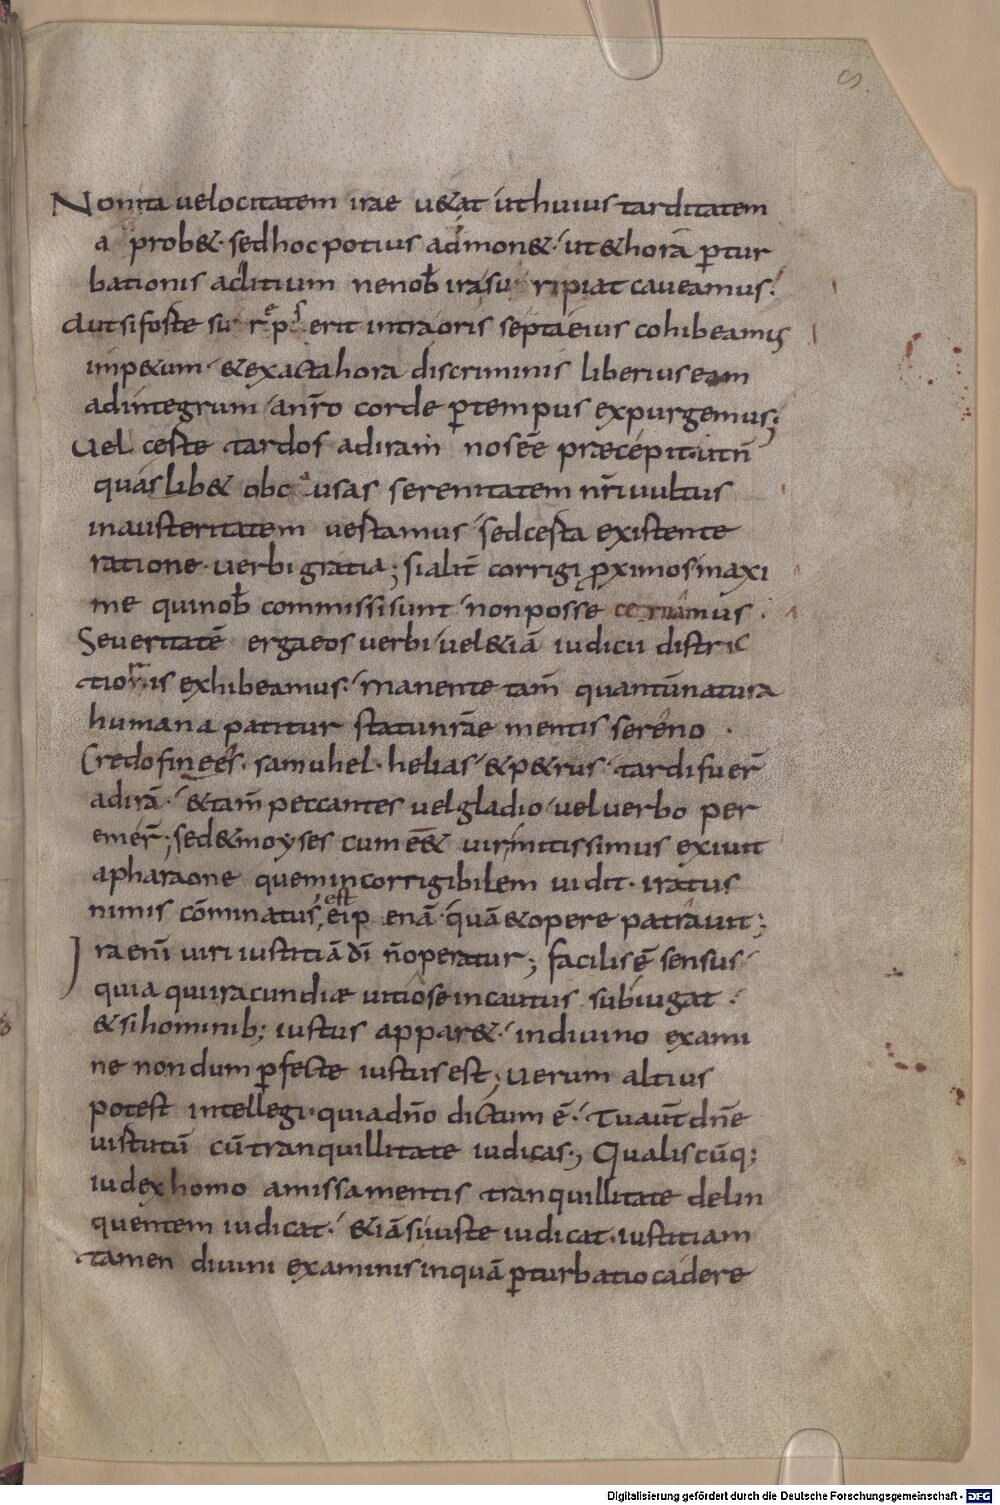 Non ita velocitatem irae u&at ut huius tarditatem
a prob& · sed hoc potius admon& · ut & horā ꝑtur
bationis aditium ne nob̄ ira suripiat caveamus ·
aut si foste su rep̄s erit intra oris septa eius cohibeamus
imp&um · & exacta hora discriminis liberius eam
ad integrum a nr̄o corde ꝑ tempus expurgemus;
Vel ceste tardos ad iram nos eē praecepit · ut n̄
quaslib& ob causas serenitatem nr̄i vultus
in austeritatem vestamus sed cesta existente
ratione · verbi gratia; si alit̄ corrigi ꝓximos maxi
me qui nob̄ commissi sunt non posse cernimus ·
Severitatē erga eos verbi vel &iā iudicii distric
tionis exhibeamus · manente tam̄ quantū natura
humana patitur statu nr̄ae mentis sereno ·
Credo finees · samuhel · helias & p&rus tardi fuer̄
ad irā · & tam̄ peccantes vel gladio vel verbo per
emer̄; sed & moyses cum eē& vir mitissimus exivit
a pharaone quem incorrigibilem vidit · iratus
nimis cōminatus est ei p enā quā & opere patravit;
Ira enī viri iustitiā dī n̄ operatur; facilis ē sensus
quia qui iracundiæ vitio se incautus subiugat ·
& si hominib; iustus appar& · in divino exami
ne nondum ꝑfeste iustus est; verum altius
potest intellegi · quia dn̄o dictum ē · Tu aut̄ dn̄e
vistutū cū tranquillitate iudicas; Qualiscūq;
iudex homo amissa mentis tranquillitate delin
quentem iudicat · &iā si iuste iudicat · iustitiam
tamen divini examinis in quā ꝑturbatio cadere